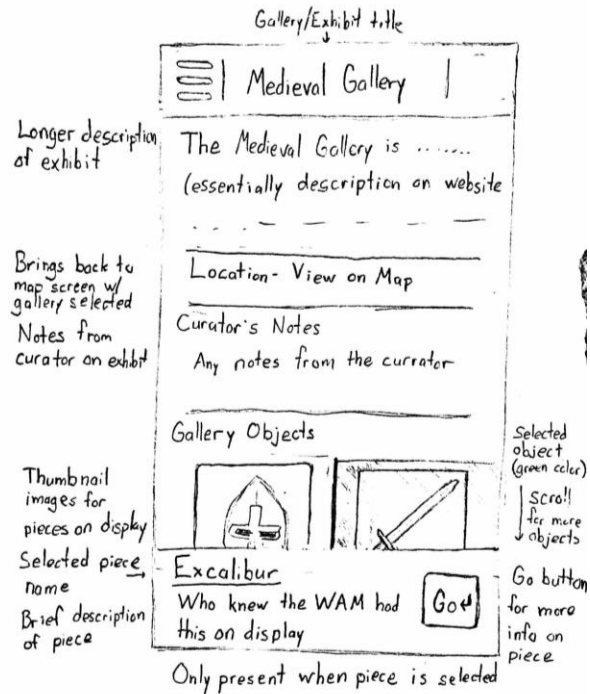 Gallery/Exhibit title
Medieval Gallery
Longer description
of exhibit
The Medieval Gallery is ........
(essentially description on website
Brings back to
map screen w/
gallery selected
Location - View on Map
Notes from
curator on exhibit
Curator's Notes
Any notes from the currator
Gallery Objects
Selected
object
(green color)
Scroll
for more
objects
Thumbnail
images for
pieces on display
Selected piece
name
Brief description
of piece
Excalibur
Who knew the WAM had
this on display
Go
Go button
for more
info on
piece
Only present when piece is selected